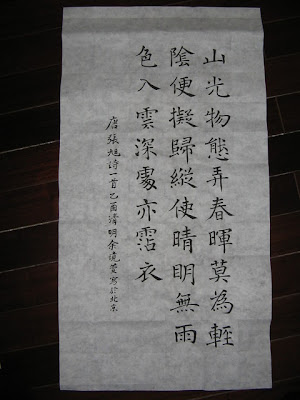 山光物態弄春暉莫為輕
陰便擬歸縱使晴明無雨
色入雲深處亦霑衣
唐張旭詩一首乙酉清明余寫於北京